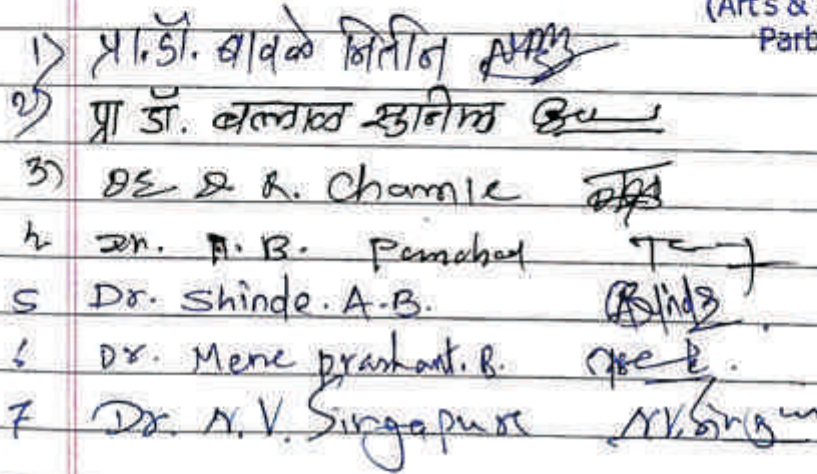 (Arts &
Parb
१) प्रा.डॉ. बावळे नितीन
२) प्रा डॉ. बल्लाळ सुनिल
३) R. Chamle
४ Dr. A. B. Pamchal
5 Dr. Shinde. A.B. Shinde
6 Dr. Mene prashant. B.
7 Dr. N. V. Singapure N.V.Sing